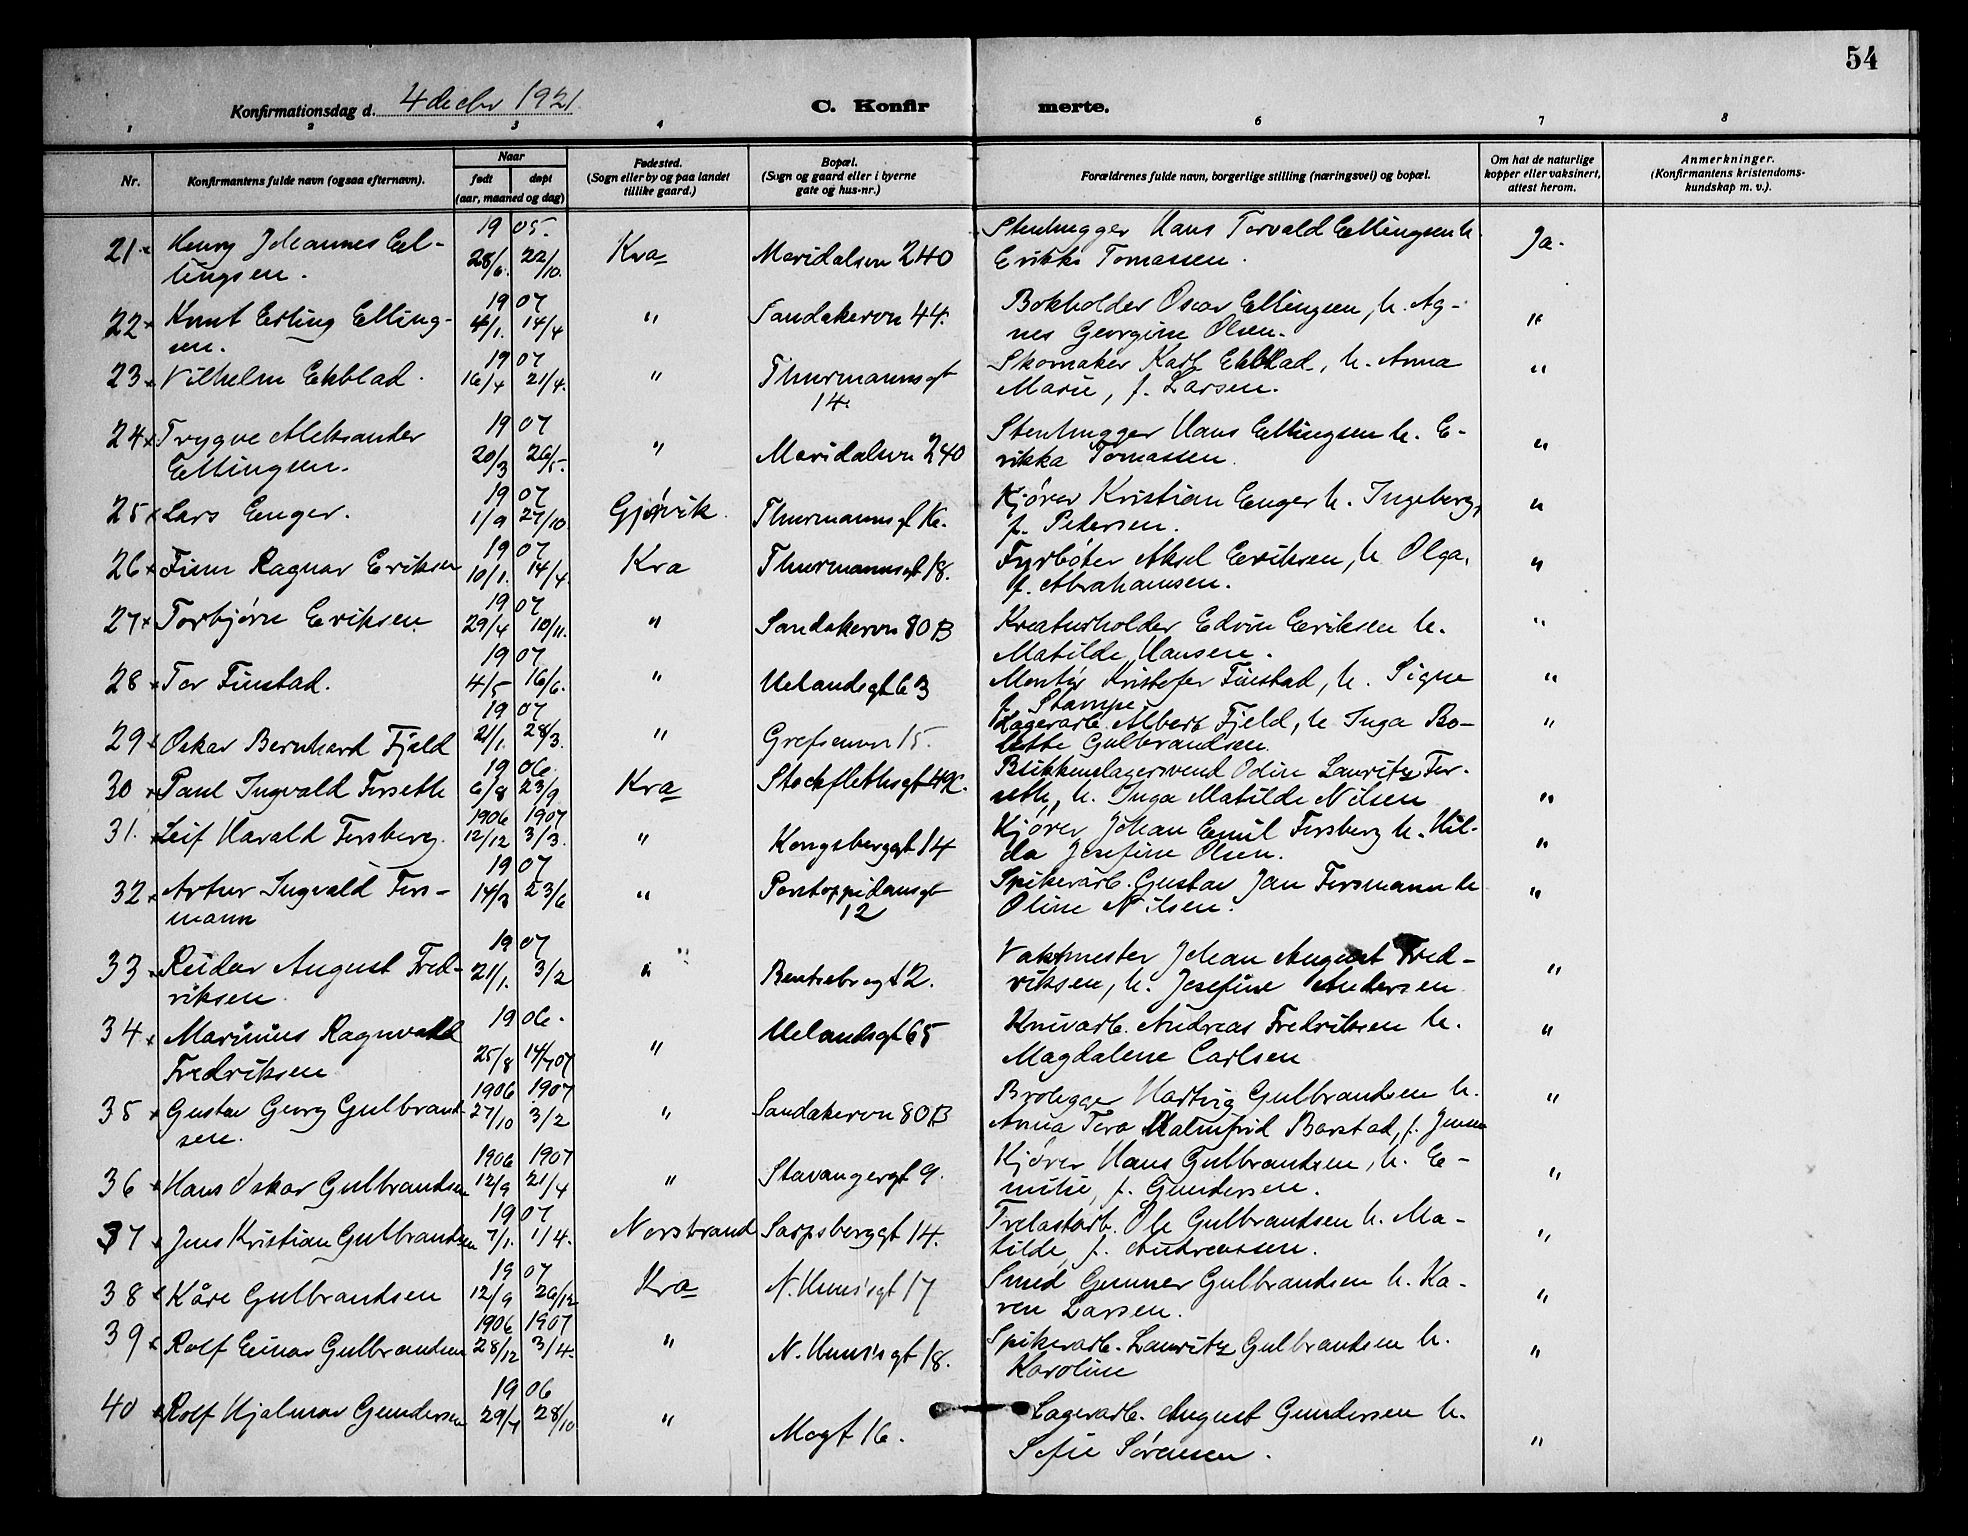 54
Konfirmationsdag d. 4 decbr 1921.
C. Konfirmerte.
1 2 3 4 6 7 8
Nr.
Konfirmantens fulde navn (ogsaa efternavn).
Naar
født døpt
(aar, maaned og dag)
Fødested.
(Sogn eller by og paa landet
tillike gaard.)
Bopæl.
(Sogn og gaard eller i byerne
gate og hus-nr.)
Forældrenes fulde navn, borgerlige stilling (næringsvei) og bopæl.
Om hat de naturlige
kopper eller vaksinert,
attest herom.
Anmerkninger.
(Konfirmantens kristendoms-
kundskap m. v.).
21 Henry Johannes Ellingsen. 1905 28/6. 22/10. Kra Maridalsvn 240 Stenhugger Hans Torvald Ellingsen h. Erikka Tomassen. Ja.
22 Knut Erling Ellingsen. 1907 4/1. 14/4 " Sandakervn 44. Bokholder Oscar Ellingsen, h. Agnes Georgine Olsen. "
23 Vilhelm Ekblad. 1907 16/4 21/4. " Thurmannsgt 14. Skomaker Karl Ekblad, h. Anna Marie, f. Larsen. "
24 Trygve Aleksander Ellingsen. 1907 20/3 26/5. " Maridalsvn 240 Stenhugger Hans Ellingsen h. Erikka Tomassen. "
25 Lars Enger. 1907 1/9 27/10 Gjøvik. Thurmannsgt Kjører Kristian Enger h. Ingeborg, f. Pedersen. "
26 Finn Ragnar Eriksen 1907 10/1. 14/4. Kra Thurmannsgt 18. Fyrbøter Aksel Eriksen, h Olga, f. Abrahamsen. "
27 Torbjørn Eriksen 1907 29/4 10/11. " Sandakervn 80 B Kreaturholder Edvin Eriksen h. Matilde Hansen. "
28 Tor Finstad. 1907 4/5 16/6. " Uelandsgt 63 Montør Kristofer Finstad, h. Signe f. Stampe. "
29 Oskar Bernhard Fjeld 1907 21/1. 28/3. " Grefsenvn 15. Lagerarb. Albert Fjeld, h Inga Bolette Gulbrandsen. "
30 Paul Ingvald Forseth 1906. 6/8 23/9 Kra Stockflethsgt Blikkenslagersvend Odin Lauritz Forseth, h. Inga Matilde Nilsen "
31. Leif Harald Forsberg. 1906 1907 12/12 3/3. " Kongsberggt 14 Kjører Johan Emil Forsberg h. Hilda Josefine Olsen. "
32 Artur Ingvald Forsmann 1907 14/3 23/6 " Pontoppidansgt 12 Spikerarb. Gustav Jan Forsmann h Oline Nilsen. "
33 Reidar August Fredriksen. 1907 21/1. 3/2 " Bentsebrogt 2. Vaktmester Johan August Fredriksen, h. Josefine Andersen "
34 Marinius Ragnvald Fredriksen 1906. 25/8 14/7 07 " Uelandsgt 65 Knivarb. Andreas Fredriksen h. Magdalene Carlsen "
35 Gustav Georg Gulbrandsen. 1906 1907 27/10 3/2 " Sandakervn 80 B Brolegger Hartvig Gulbrandsen h. Anna Tora Malmfrid Barstad, f. Jensen "
36 Hans Oskar Gulbrandsen 1906 1907 12/9 21/4 " Stavangergt 9. Kjører Hans Gulbrandsen, h. Emilie, f. Gundersen. "
37 Jens Kristian Gulbrandsen 1907 7/1. 1/4. Norstrand Sarpsborggt 14. Trelastarb. Ole Gulbrandsen h. Matilde, f. Andreassen. "
38 Kåre Gulbrandsen 1907 12/9 26/12 Kra N. Huus'sgt 17 Smed Gunner Gulbrandsen h. Karen Larsen. "
39 Rolf Einar Gulbrandsen 1906 1907 28/12 3/4. " N. Huus'sgt 18. Spikerarb. Lauritz Gulbrandsen h. Karoline "
40 Rolf Hjalmar Gundersen 1906 29/4 28/10 " Mogt 16. Lagerarb. August Gundersen h. Sofie Sørensen. "